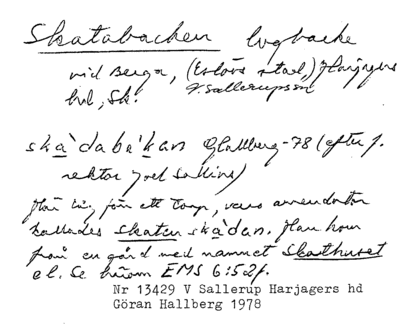 Skatabacken lugbacke
vid Berga, (Eslövs stad,) Harjagers
hd, Sk. V. Sallerups sn
skà'daba'kan GHallberg-78 (efter f.
rektor Joel Sallius)
Här låg förr ett torp, vars arrendator
kallades Skatan skà'dan. Han kom
från en gård med namnet Skatthuset
el. Se härom EMS 6:52f.
Nr 13429 V Sallerup Harjagers hd
Göran Hallberg 1978